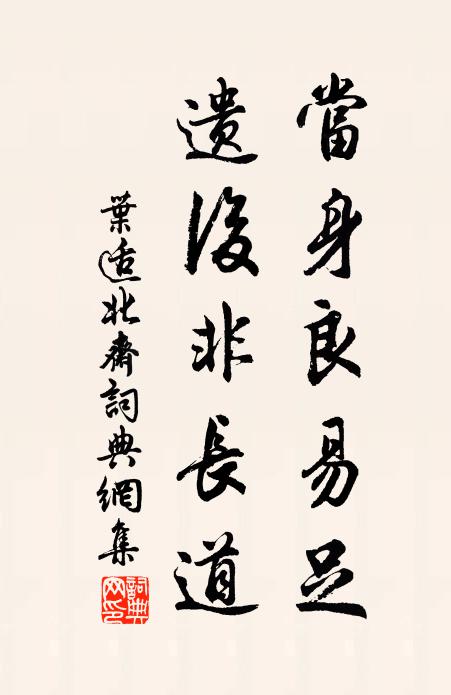 當身良易足
遺後非長道
葉适北齋詞典網集
詞典網印